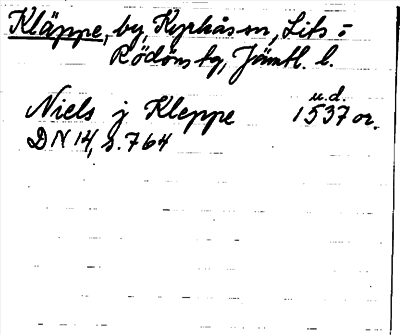 Kläppe, by, Kyrkås sn, Lits o
Rödöns tg, Jämtl. l.
u.d.
Niels j Kleppe 1537 or.
DN 14, s. 764